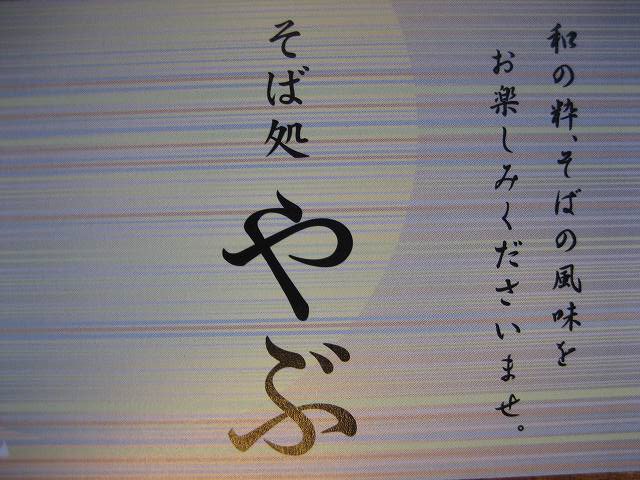 和の粋、そばの風味を
お楽しみくださいませ。
そば処
やぶ